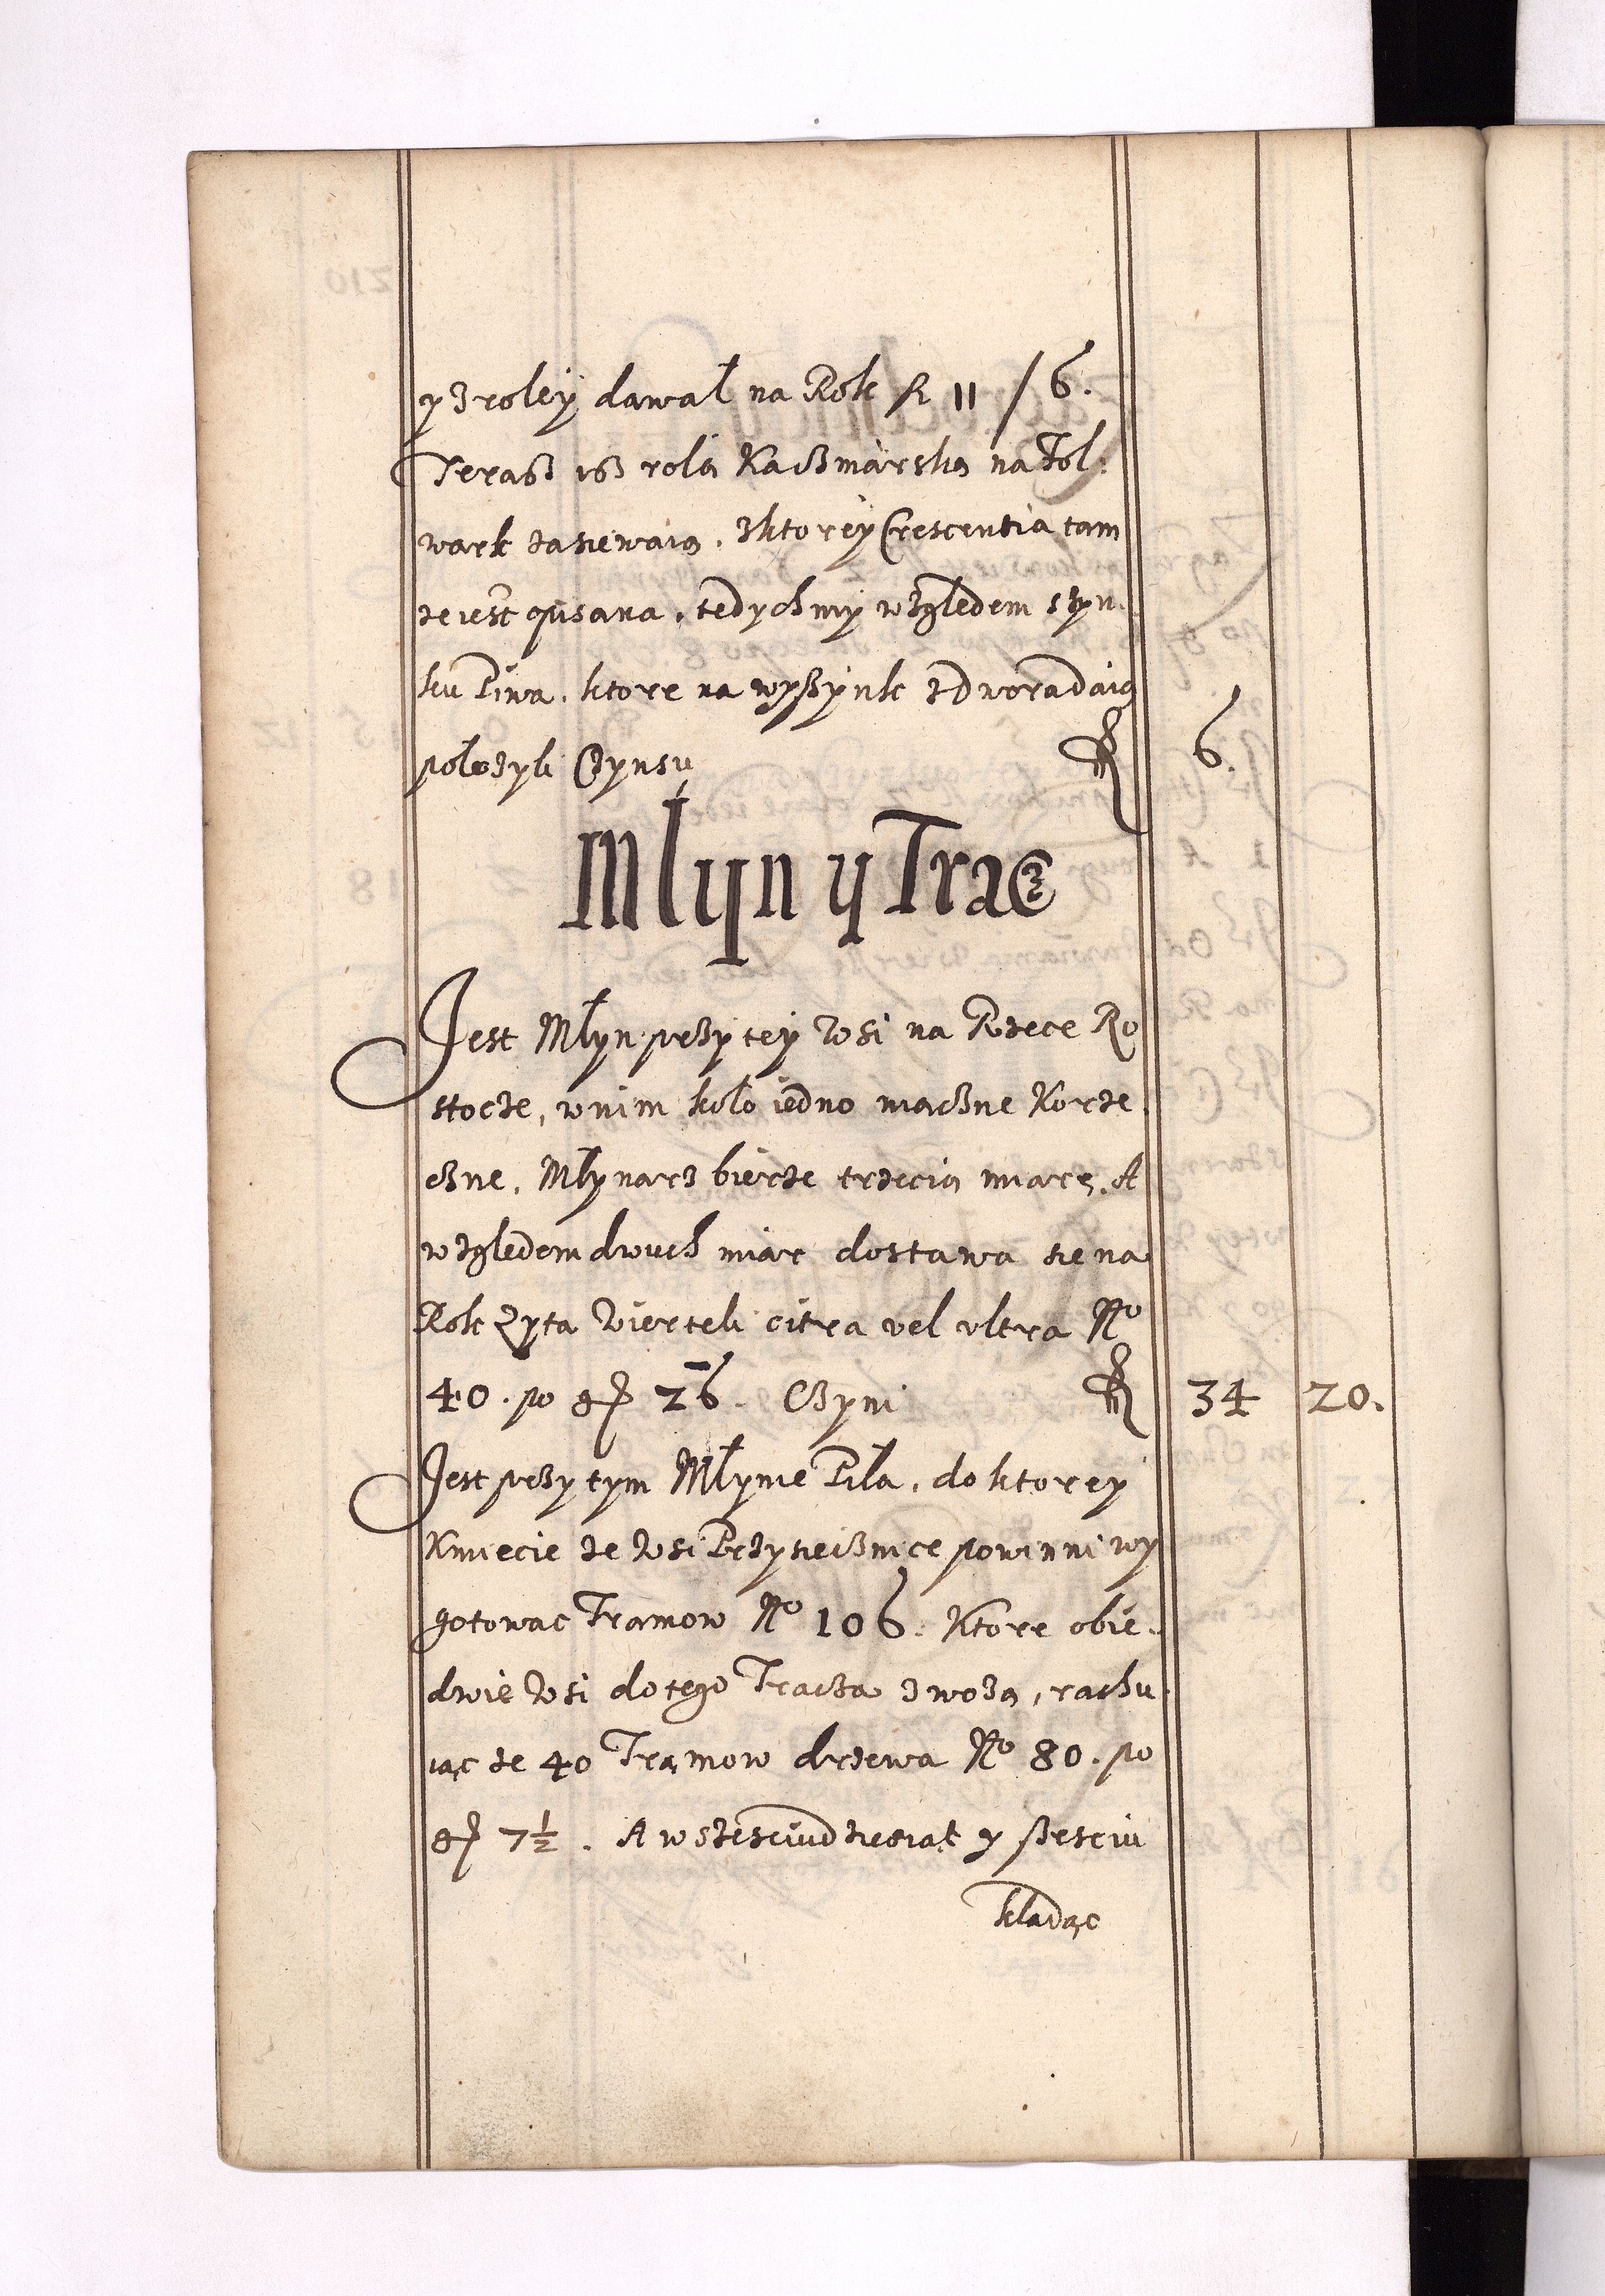 y z roley dawał na Rok fl 11 / 6.
Teraß iß rolą Kaczmarską na Fol:
wark zasiewaią. Z ktorey Crescentia tam
ze iest opisana, tedychmy względem szyn.
ku Piwa, ktore na wyßynk z dwora daią
położyli Czynsu fl 6.
Młyn y Tracz
Jest Młyn przy tey Wsi na Rzece Ro
stocze, w nim koło iedno mączne Korze
czne, Młynarz bierze trzecią miarę, A
względem dwuch miar dostawa sie na
Rok Zyta Wierteli citra vel ultra No
40. po gr 26. Czyni fl 34 20.
Jest przy tym Młynie Piła, do ktorey
Kmiecie ze Wsi Przysieicznice powinni wy
gotowac Tramow No 106. Ktore obie.
dwie Wsi do tego Tracza zwożą, rachu
iąc ze 40 Tramow drzewa No 80. po
gr 7½. A w szesciudziesiąt y ßesciu
kładąc